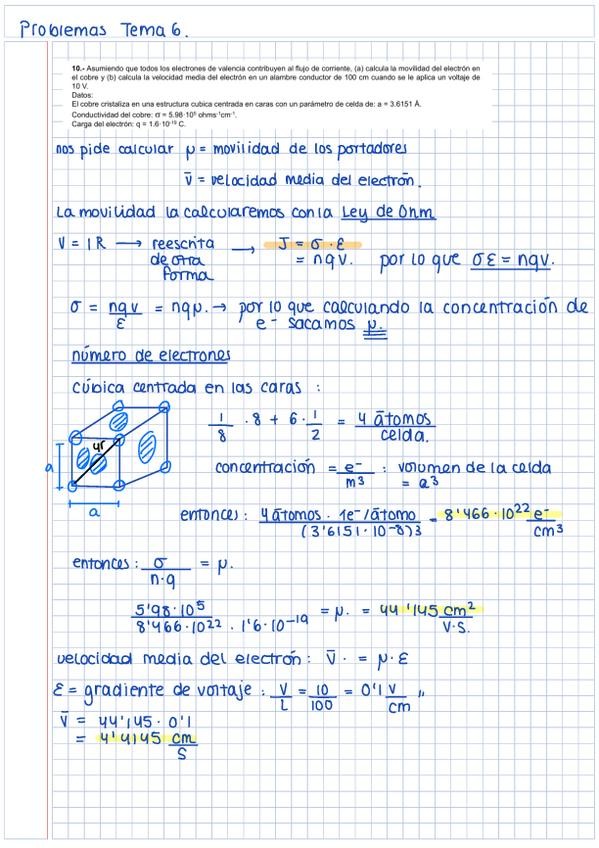 Problemas Tema 6.
10.- Asumiendo que todos los electrones de valencia contribuyen al flujo de corriente, (a) calcula la movilidad del electrón en
el cobre y (b) calcula la velocidad media del electrón en un alambre conductor de 100 cm cuando se le aplica un voltaje de
10 V.
Datos:
El cobre cristaliza en una estructura cubica centrada en caras con un parámetro de celda de: a = 3.6151 Å.
Conductividad del cobre: σ = 5.98·10⁵ ohms⁻¹cm⁻¹.
Carga del electrón: q = 1.6·10⁻¹⁹ C.
nos pide calcular μ = movilidad de los portadores
v̄ = velocidad media del electrón.
La movilidad la calcularemos con la Ley de Ohm
V = IR → reescrita de otra forma → J = σ · ε
= nqv. por lo que σε = nqv.
σ = nqv/ε = nqμ. → por lo que calculando la concentración de
e⁻ sacamos μ.
número de electrones
cúbica centrada en las caras :
1/8 · 8 + 6 · 1/2 = 4 átomos/celda.
4r
a
a
concentración = e⁻/m³ : volumen de la celda
= a³
entonces: 4 átomos · 1e⁻/átomo / (3'6151 · 10⁻⁸)3 = 8'466 · 10²² e⁻/cm³
entonces: σ/n·q = μ.
5'98·10⁵ / 8'466·10²² · 1'6·10⁻¹⁹ = μ. = 44'145 cm²/V·S.
velocidad media del electrón: v̄ · = μ · ε
ε = gradiente de voltaje : V/L = 10/100 = 0'1 V/cm "
v̄ = 44'145 · 0'1
= 4'4145 cm/s